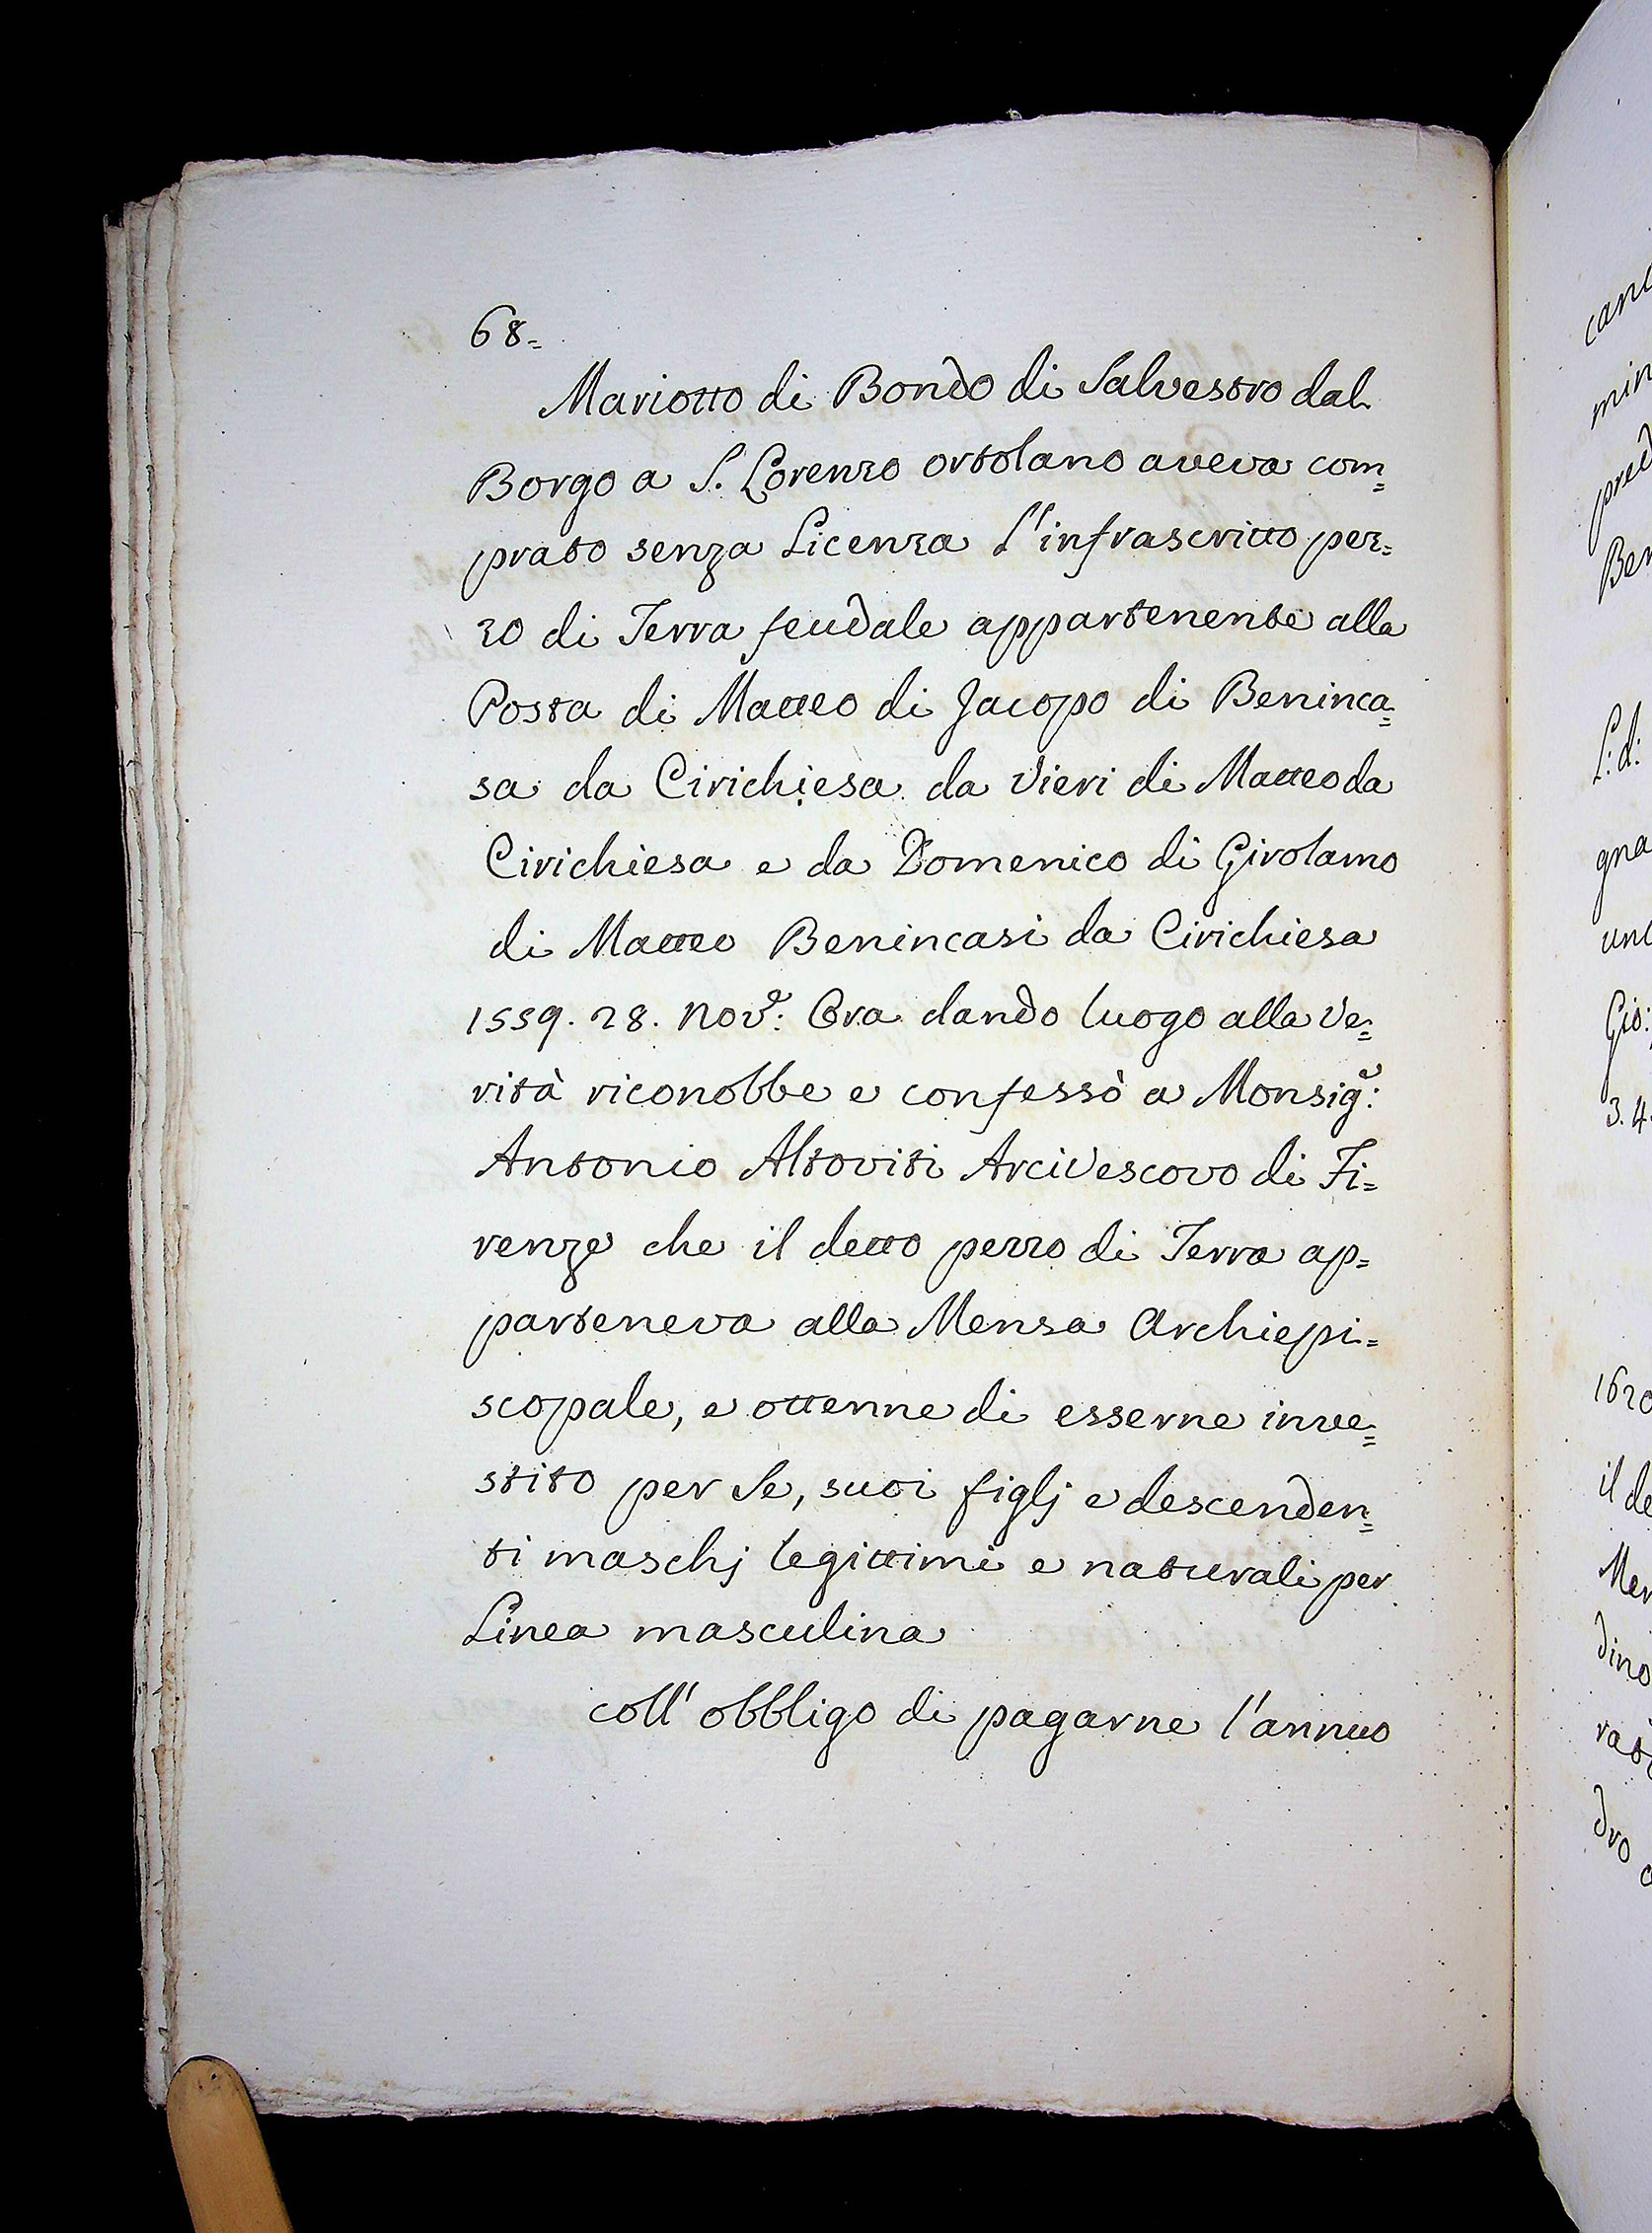 68=
Mariotto di Bondo di Salvestro dal
Borgo a S. Lorenzo ortolano aveva com=
prato senza Licenza l'infrascritto pez=
zo di Terra feudale appartenente alla
Posta di Matteo di Jacopo di Beninca=
sa da Cirichiesa da Vieri di Matteo da
Cirichiesa e da Domenico di Girolamo
di Matteo Benincasi da Cirichiesa
1559. 28. Nov.e: Ora dando luogo alla Ve=
rità riconobbe e confessò a Monsig.e:
Antonio Altoviti Arcivescovo di Fi=
renze che il detto pezzo di Terra ap=
parteneva alla Mensa Archiepi=
scopale, e ottenne di esserne inve=
stito per Se, suoi figlj e descenden=
ti maschj legittimi e naturali per
Linea masculina
coll' obbligo di pagarne l'annuo
L: d:
gna
Gio:
3. 4
il de
dino
dro